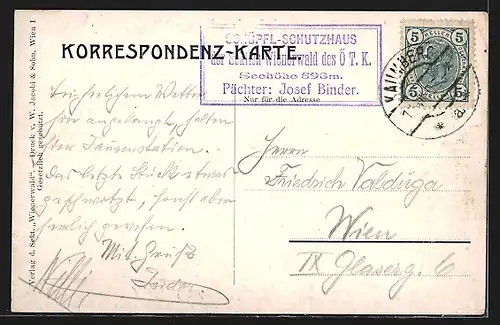 SCHÖPFL-SCHUTZHAUS
der Sektion Wienerwald des Ö. T. K.
Seehöhe 893m.
Pächter: Josef Binder.
KORRESPONDENZ-KARTE.
Nur für die Adresse
5 HELLER 5
5 5
KAUMBERG
Bei herrlichem Wetter
hier angelangt, halten
hier Jausenstation.
Das letzte Stück etwas
geschwitzt, sonst aber
herrlich gewesen.
Mit Gruß
Herrn
Friedrich Valduga
Wien
IX Glaserg. 6
Verlag d. Sekt. „Wienerwald". — Druck v. W. Jacobi & Sohn, Wien I
Gesetzlich geschützt.